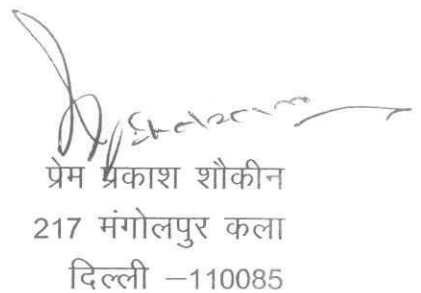 प्रेम प्रकाश शौकीन
217 मंगोलपुर कला
दिल्ली –110085